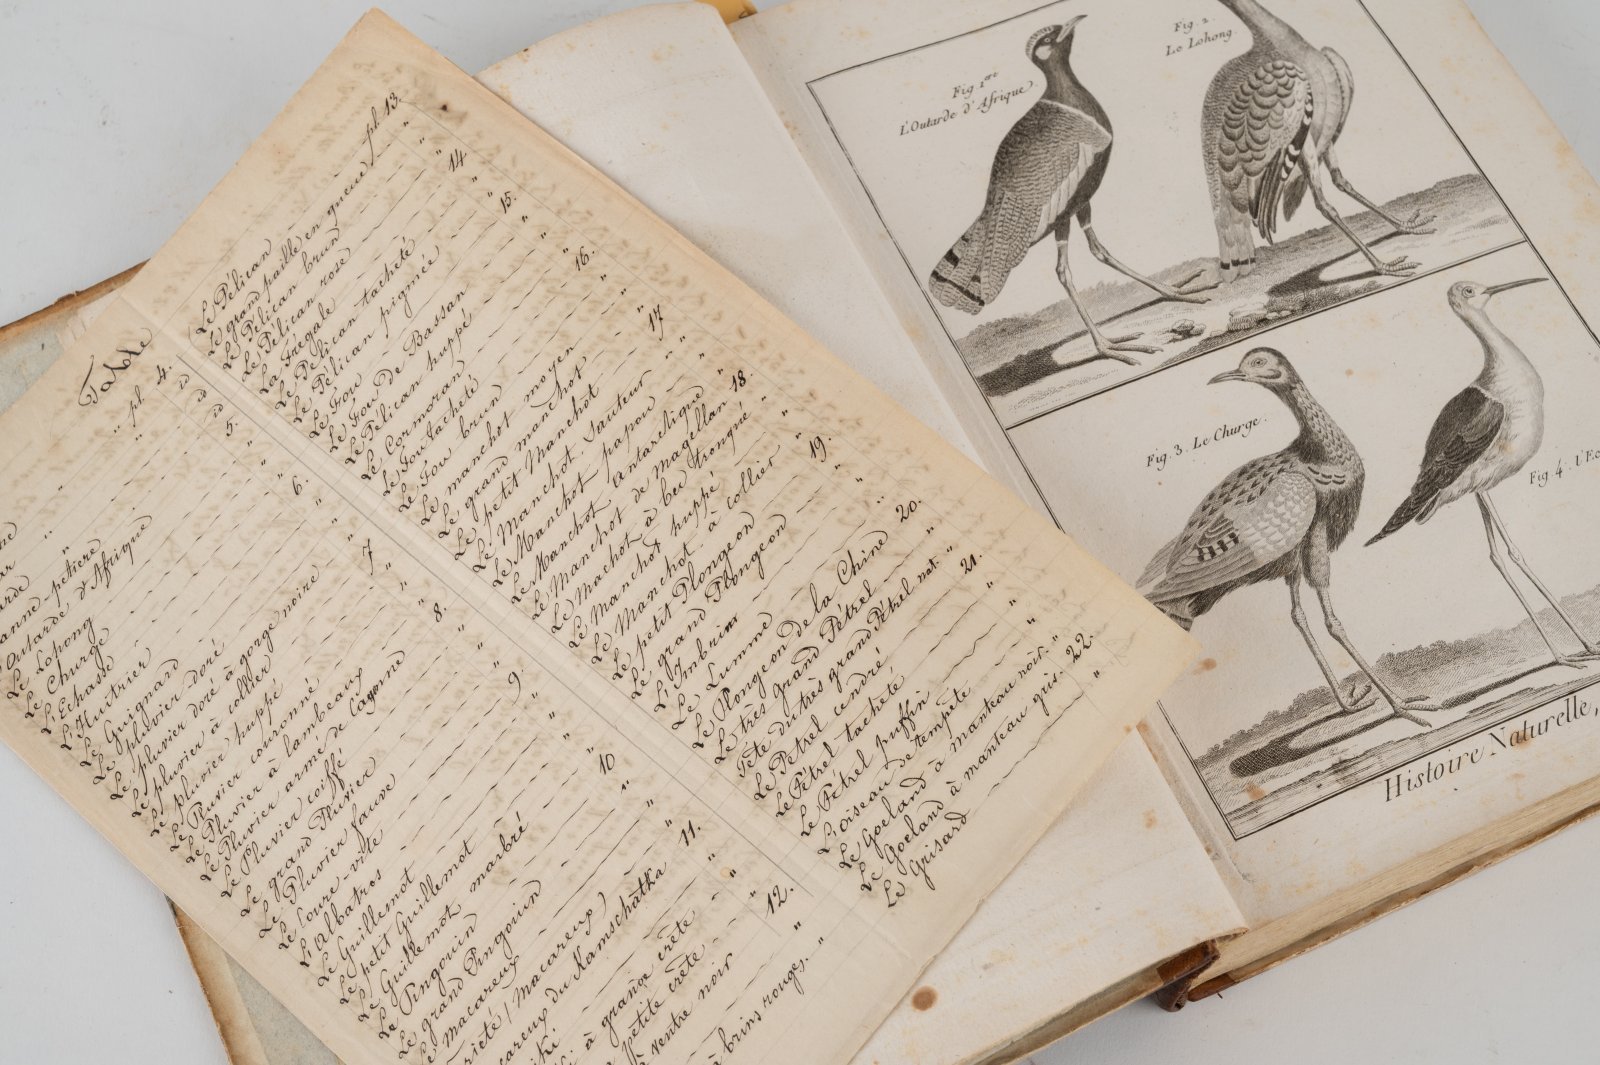 Table
" pl. 4.
" id
" id
anne-petiere
Outarde d'Afrique 5.
Le Lohong "
Le Churge "
L'Echasse 6.
L'Huitrier "
Le Guignard
Le pluvier doré
Le pluvier doré à gorge noire 7
Le pluvier à collier "
Le pluvier huppé "
Le Pluvier couronné 8.
Le Pluvier à lambeaux "
Le Pluvier armé de Cayenne "
Le Pluvier coiffé
Le grand Pluvier 9
Le Pluvier fauve "
Le Coure-vite "
L'Albatros
Le Guillemot 10
Le petit Guillemot "
Le Guillemot marbré "
Le Pingouin
Le grand Pingouin 11.
Le macareux "
(macareux)
macareux du Kamschatka 12.
à grande crête
petite crête
à ventre noir
à brins rouges.
Le Pélican
Le grand paille en queue pl. 13.
Le Pélican brun "
Le Pélican rose "
La Frégate 14
Le Pélican tacheté "
Le Pélican pigmée "
Le Fou 15.
Le Fou de Bassan "
Le Pélican huppé "
Le Cormoran "
Le Fou tacheté 16.
Le Fou brun "
Le manchot moyen "
Le grand manchot "
Le petit Manchot 17
Le Manchot sauteur "
Le Manchot papou "
Le Manchot antarctique "
Le Manchot de Magellan 18.
Le Machot à bec tronqué "
Le Manchot huppé "
Le Manchot à collier "
Le petit Plongeon 19.
Le grand Plongeon "
L'Imbrim "
Le Lumme "
Le Plongeon de la Chine 20.
Le très grand Pétrel "
Tête du très grand Pétrel nat. "
Le Petrel cendré 21.
Le Pétrel tacheté "
Le Pétrel puffin "
L'oiseau de tempête "
Le Goeland à manteau noir. "
Le Goeland à manteau gris. 22.
Le Grisard "
Fig 1ere
L'Outarde d'Afrique.
Fig 2
Le Lohong.
Fig. 3. Le Churge.
Fig. 4.
Histoire Naturelle,